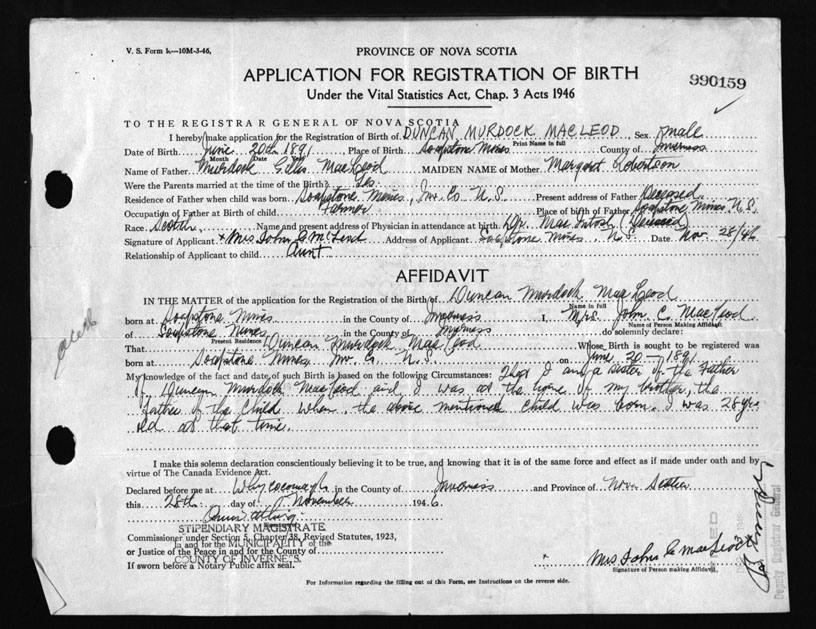 V. S. Form 1.—10M-3-46.
PROVINCE OF NOVA SCOTIA
APPLICATION FOR REGISTRATION OF BIRTH
990159
Under the Vital Statistics Act, Chap. 3 Acts 1946
TO THE REGISTRAR GENERAL OF NOVA SCOTIA
I hereby make application for the Registration of Birth of DUNCAN MURDOCK MACLEOD Sex male
Print Name in full
Date of Birth June 20th 1891 Place of Birth Soapstone Mines County of Inverness
Month Date Year
Name of Father Murdock Gillis MacLeod MAIDEN NAME of Mother Margaret Robertson
Were the Parents married at the time of the Birth? Yes
Residence of Father when child was born Soapstone Mines, Inv. Co N.S. Present address of Father Deceased
Occupation of Father at Birth of child Farmer Place of birth of Father Soapstone Mines N.S.
Race Scotch Name and present address of Physician in attendance at birth Dr. MacIntosh (Deceased)
Signature of Applicant x Mrs John C. McLeod Address of Applicant Soapstone Mines, N.S. Date Nov. 28/46
Relationship of Applicant to child Aunt
AFFIDAVIT
IN THE MATTER of the application for the Registration of the Birth of Duncan Murdock MacLeod
Name in full
born at Soapstone Mines in the County of Inverness I, Mrs. John C. MacLeod
Name of Person Making Affidavit
of Soapstone Mines in the County of Inverness do solemnly declare:
Present Residence
That Duncan Murdock MacLeod Whose Birth is sought to be registered was
born at Soapstone Mines, Inv. Co. N.S. on June 20 – 1891
My knowledge of the fact and date of such Birth is based on the following Circumstances: That I am a sister of the Father
of Duncan Murdock MacLeod and I was at the home of my brother, the
Father of the Child when, the above mentioned child was born. I was 28 yrs
old at that time.
I make this solemn declaration conscientiously believing it to be true, and knowing that it is of the same force and effect as if made under oath and by
virtue of The Canada Evidence Act.
Declared before me at Whycocomagh in the County of Inverness and Province of Nova Scotia
this 28th day of November 1946
STIPENDIARY MAGISTRATE
Commissioner under Section 5, Chapter 38, Revised Statutes, 1923,
in and for the MUNICIPALITY of the
or Justice of the Peace in and for the County of
COUNTY OF INVERNESS.
If sworn before a Notary Public affix seal.
x Mrs John C MacLeod x
Signature of Person making Affidavit
For Information regarding the filling out of this Form, see Instructions on the reverse side.
Deputy Registrar General